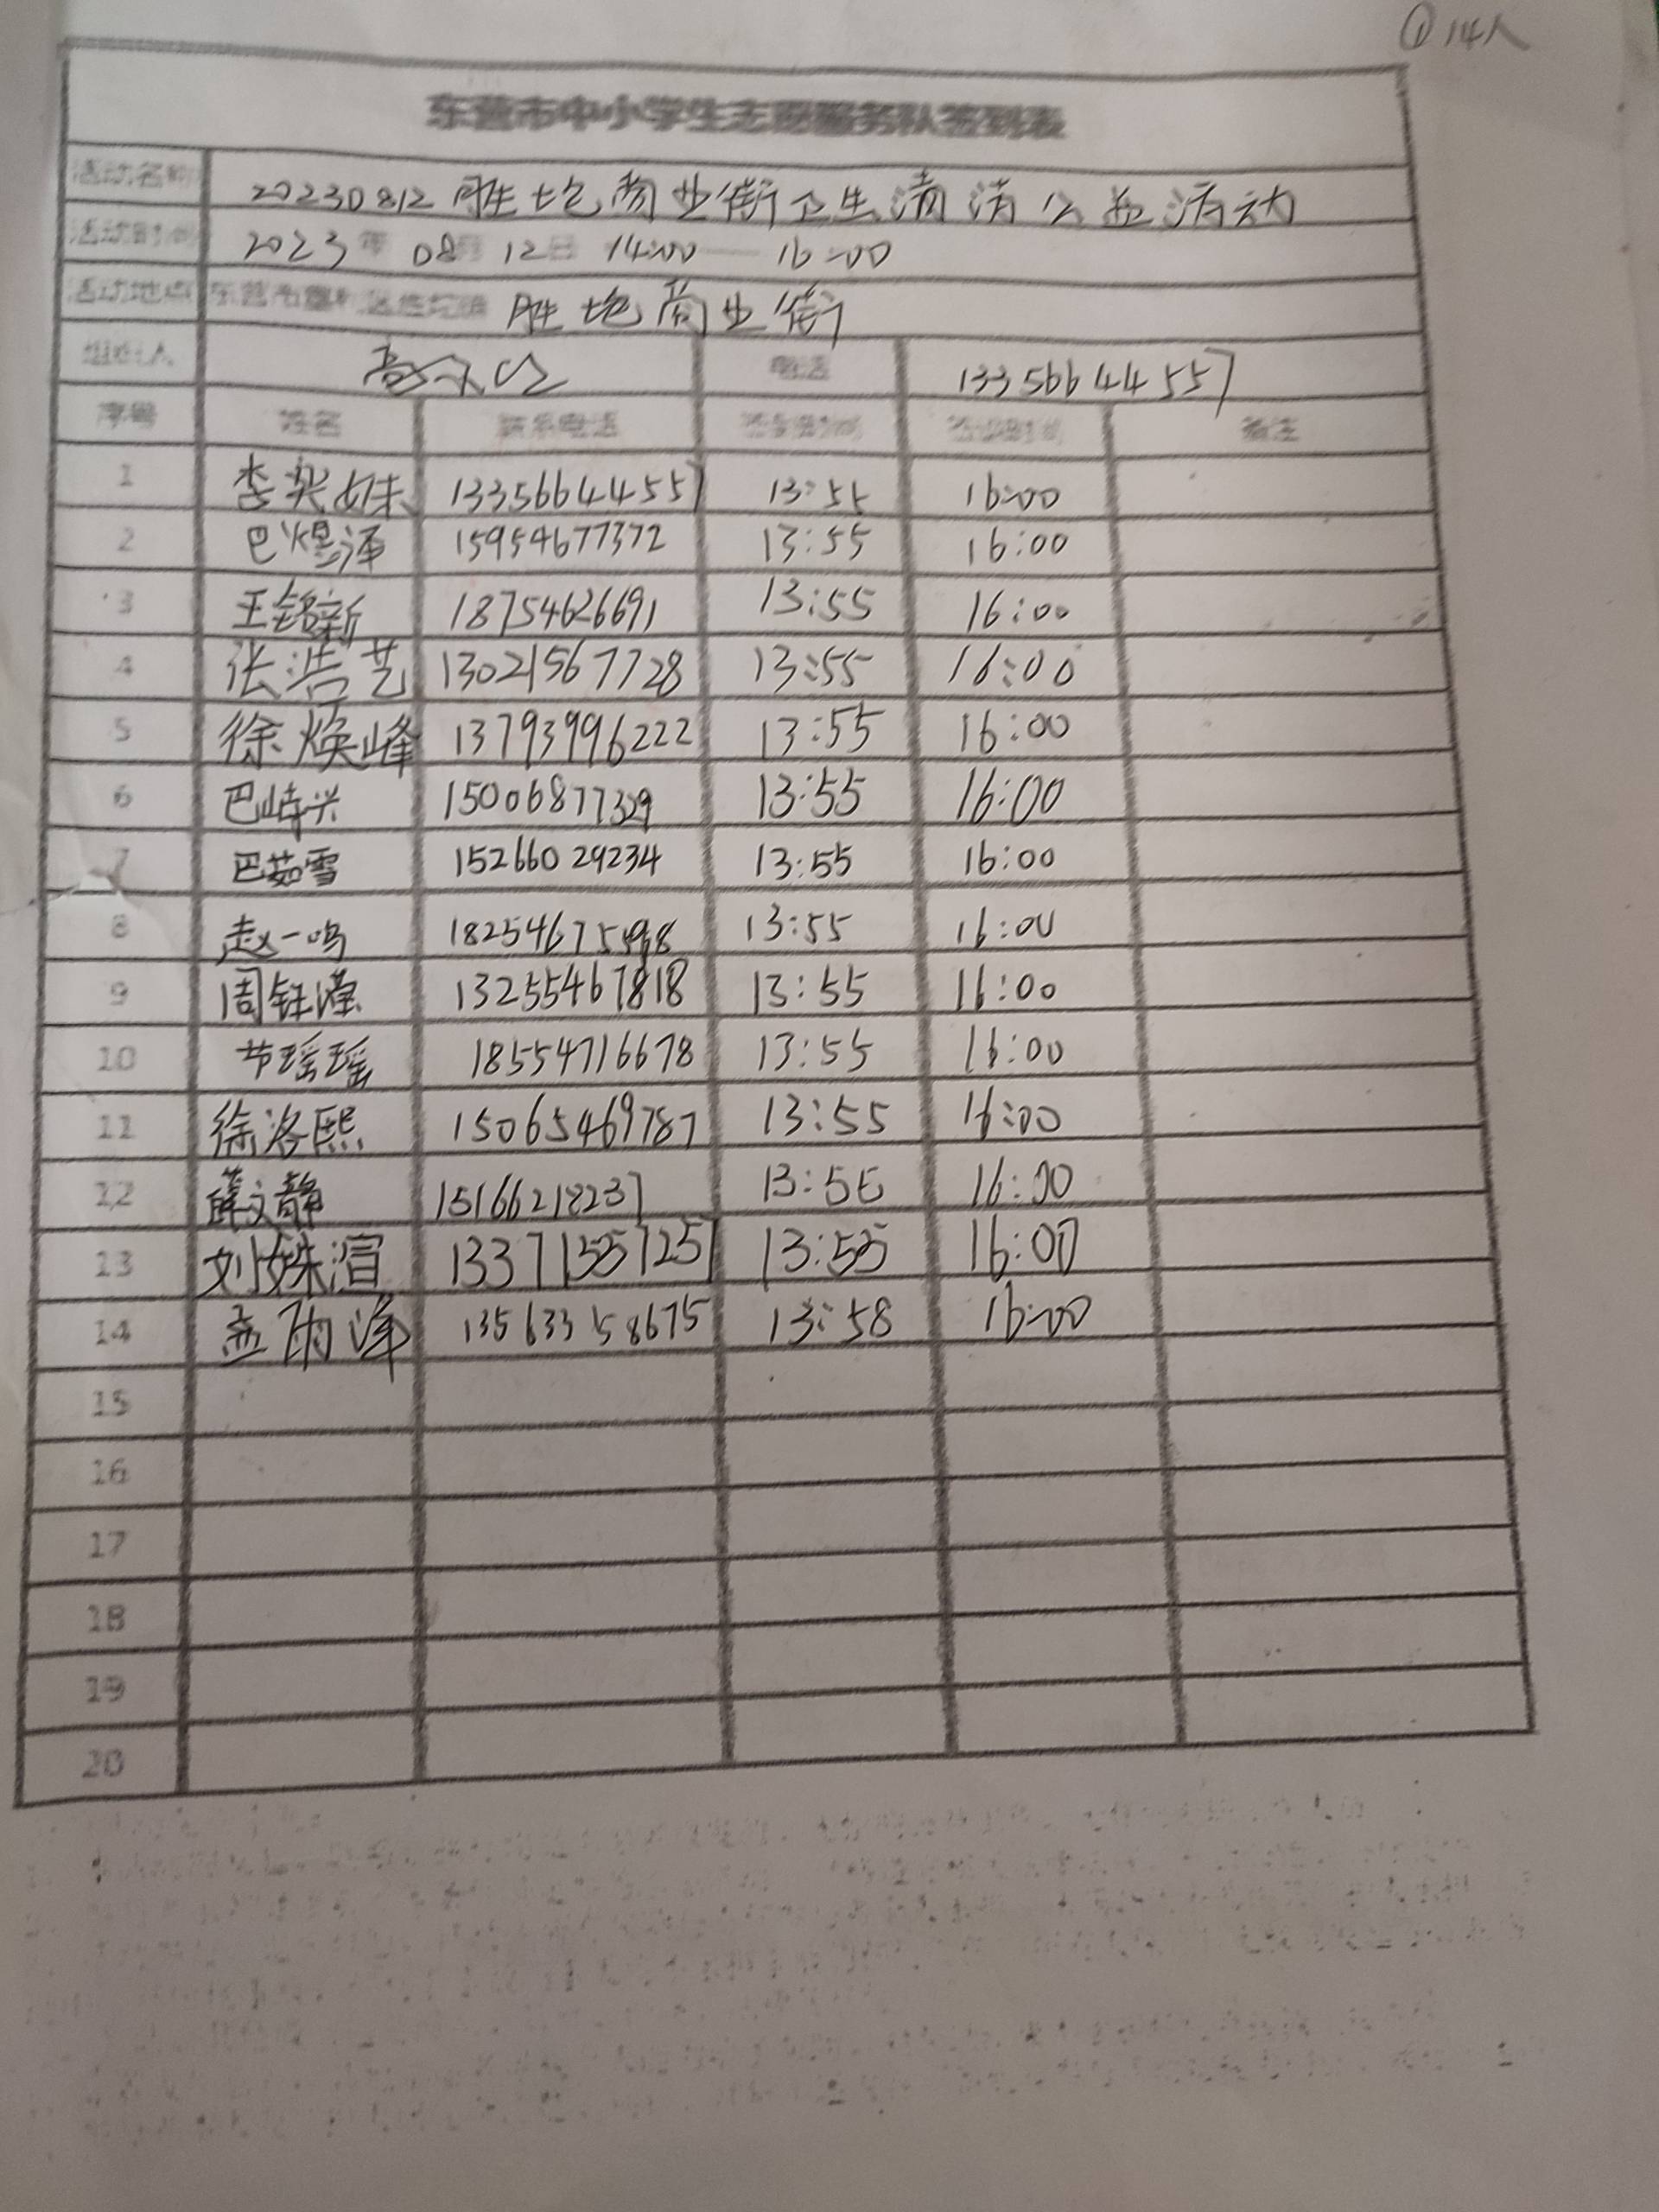 ① 14人
东营市中小学生志愿服务队签到表
活动名称 20230812胜坨商业街卫生清洁公益活动
活动时间 2023年 08月 12日 14:00—16:00
活动地点 东营市垦利区胜坨镇 胜坨商业街
组织人 电话 13356644557
序号 姓名 联系电话 签到时间 签退时间 备注
1 李奕姝 13356644557 13:55 16:00
2 巴煜泽 15954677372 13:55 16:00
3 王铭新 18754626691 13:55 16:00
4 张浩艺 13021567728 13:55 16:00
5 徐焕峰 13793996222 13:55 16:00
6 巴崎兴 15006877329 13:55 16:00
7 巴茹雪 15266029234 13:55 16:00
8 赵一鸣 13:55 16:00
9 周钰滢 13255467818 13:55 16:00
10 苄瑶瑶 18554716678 13:55 16:00
11 徐洛熙 15065469787 13:55 16:00
12 薛文静 15166218237 13:55 16:00
13 刘姝渲 13371557257 13:55 16:00
14 孟雨泽 13563358675 13:58 16:00
15
16
17
18
19
20